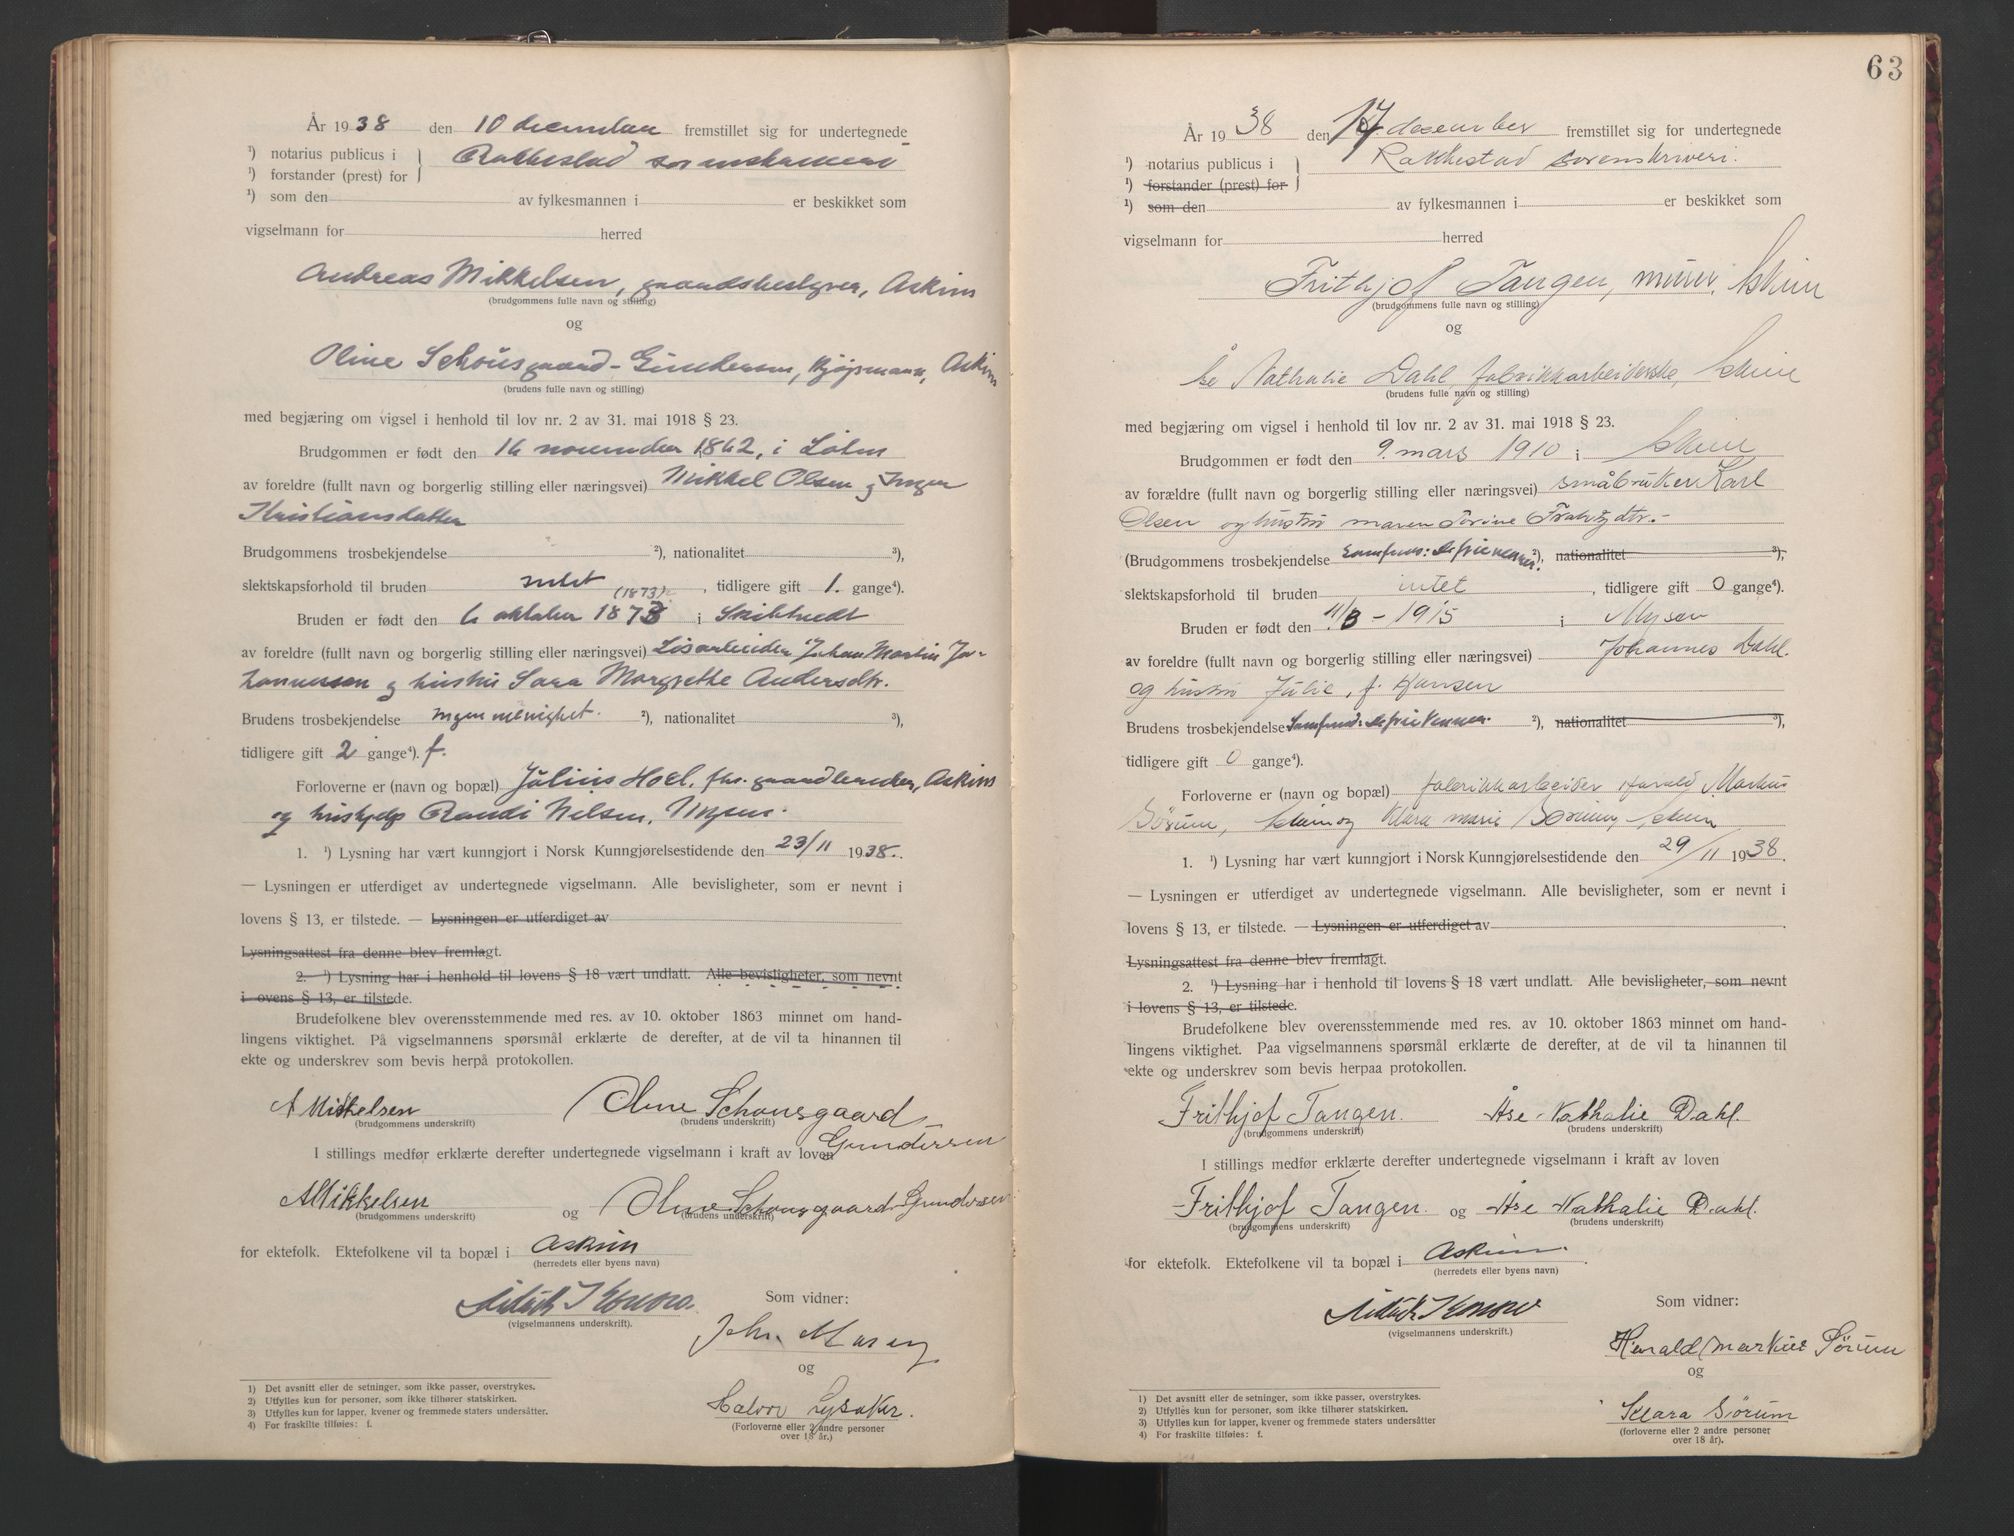 År 1938 den 10 december fremstillet sig for undertegnede
¹) notarius publicus i
Rakkestad sorenskriveri
¹) forstander (prest) for
¹) som den av fylkesmannen i er beskikket som
vigselmann for herred
Andreas Mikkelsen, gaardsbestyrer, Askim
(brudgommens fulle navn og stilling)
og
Oline Schousgaard-Gundersen, kjøpmann, Askim
(brudens fulle navn og stilling)
med begjæring om vigsel i henhold til lov nr. 2 av 31. mai 1918 § 23.
Brudgommen er født den 16 november 1862, i
av foreldre (fullt navn og borgerlig stilling eller næringsvei) Mikkel Olsen og Inger
Kristiansdatter
Brudgommens trosbekjendelse ²), nationalitet ³),
slektskapsforhold til bruden intet, tidligere gift 1. gange⁴).
(1873)
Bruden er født den 6 oktober 1873 i Skiptvedt
av foreldre (fullt navn og borgerlig stilling eller næringsvei) Løsarbeider Johan Martin Jo-
hannessen og hustru Sara Margrethe Andersdtr.
Brudens trosbekjendelse Ingen menighet. ²), nationalitet ³),
tidligere gift 2 gange⁴). f.
Forloverne er (navn og bopæl) Julius Hoel, fhv. gaardbruker, Askim
og hushjelp Randi Nilsen, Mysen.
1. ¹) Lysning har vært kunngjort i Norsk Kunngjørelsestidende den 23/11 1938.
— Lysningen er utferdiget av undertegnede vigselmann. Alle bevisligheter, som er nevnt i
lovens § 13, er tilstede. — Lysningen er utferdiget av
Lysningsattest fra denne blev fremlagt.
2. ¹) Lysning har i henhold til lovens § 18 vært undlatt. Alle bevisligheter, som nevnt
i ovens § 13, er tilstede.
Brudefolkene blev overensstemmende med res. av 10. oktober 1863 minnet om hand-
lingens viktighet. På vigselmannens spørsmål erklærte de derefter, at de vil ta hinannen til
ekte og underskrev som bevis herpå protokollen.
A Mikkelsen Oline Schousgaard
(brudgommens underskrift) (brudens underskrift)
Gundersen
I stillings medfør erklærte derefter undertegnede vigselmann i kraft av loven
A Mikkelsen og Oline Schousgaard Gundersen
(brudgommens underskrift) (brudens underskrift)
for ektefolk. Ektefolkene vil ta bopæl i Askim
(herredets eller byens navn)
Som vidner:
(vigselmannens underskrift).
og
Halvor Lysaker.
(Forloverne eller 2 andre personer
over 18 år.)
1) Det avsnitt eller de setninger, som ikke passer, overstrykes.
2) Utfylles kun for personer, som ikke tilhører statskirken.
3) Utfylles kun for lapper, kvener og fremmede staters undersåtter.
4) For fraskilte tilføies: f.
63
År 1938 den 17. desember fremstillet sig for undertegnede
¹) notarius publicus i
Rakkestad sorenskriveri.
¹) forstander (prest) for
¹) som den av fylkesmannen i er beskikket som
vigselmann for herred
Frithjof Tangen, murer, Askim
(brudgommens fulle navn og stilling)
og
Åse Nathalie Dahl, fabrikkarbeiderske, Askim
(brudens fulle navn og stilling)
med begjæring om vigsel i henhold til lov nr. 2 av 31. mai 1918 § 23.
Brudgommen er født den 9. mars 1910 i Askim
av forældre (fullt navn og borgerlig stilling eller næringsvei) småbruker Karl
Olsen og hustru Maren
(Brudgommens trosbekjendelse Samfund: de frie venner. ²), nationalitet ³),
slektskapsforhold til bruden intet, tidligere gift 0 gange⁴).
Bruden er født den 11/8 - 1915 i Mysen
av foreldre (fullt navn og borgerlig stilling eller næringsvei) Johannes Dahl.
og hustru Julie, f. Hansen
Brudens trosbekjendelse Samfund: de frie venner. ²), nationalitet ³),
tidligere gift 0 gange⁴).
Forloverne er (navn og bopæl) fabrikkarbeider Harald Markus
Sørum, Askim og Klara Marie Sørum, Askim
1. ¹) Lysning har vært kunngjort i Norsk Kunngjørelsestidende den 29/11 1938.
— Lysningen er utferdiget av undertegnede vigselmann. Alle bevisligheter, som er nevnt i
lovens § 13, er tilstede. — Lysningen er utferdiget av
Lysningsattest fra denne blev fremlagt.
2. ¹) Lysning har i henhold til lovens § 18 vært undlatt. Alle bevisligheter, som nevnt
i lovens § 13, er tilstede.
Brudefolkene blev overensstemmende med res. av 10. oktober 1863 minnet om hand-
lingens viktighet. Paa vigselmannens spørsmål erklærte de derefter, at de vil ta hinannen til
ekte og underskrev som bevis herpaa protokollen.
Frithjof Tangen. Åse Nathalie Dahl.
(brudgommens underskrift) (brudens underskrift)
I stillings medfør erklærte derefter undertegnede vigselmann i kraft av loven
Frithjof Tangen. og Åse Nathalie Dahl.
(brudgommens underskrift) (brudens underskrift)
for ektefolk. Ektefolkene vil ta bopæl i Askim.
(herredets eller byens navn)
Som vidner:
(vigselmannens underskrift.)
Harald Markus Sørum
og
Klara Sørum
(forloverne eller 2 andre personer
over 18 år).
1) Det avsnitt eller de setninger, som ikke passer, overstrykes.
2) Utfylles kun for personer, som ikke tilhører statskirken.
3) Utfylles kun for lapper, kvener og fremmede staters undersåtter
4) For fraskilte tilføies: f.